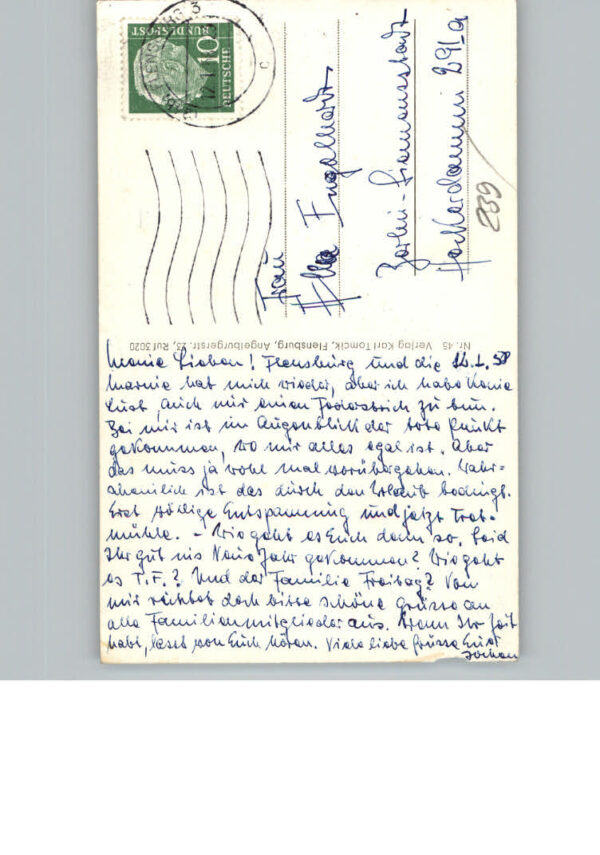 FLENSBURG 3
DEUTSCHE
BUNDESPOST
10
c
Frau
Ella Engelhardt
Berlin-Siemensstadt
Heckerdamm 291a
239
Nr. 45 Verlag Karl Tomcik, Flensburg, Angelburgerstr. 23, Ruf 3020
Meine Lieben! Flensburg und die 16.1.58
Marine hat mich wieder, aber ich habe keine
Lust, auch nur einen Federstrich zu tun.
Bei mir ist im Augenblick der tote Punkt
gekommen, wo mir alles egal ist. Aber
das muss ja wohl mal vorübergehen. Wahr-
scheinlich ist das durch den Urlaub bedingt.
Erst völlige Entspannung und jetzt Tret-
mühle. – Wie geht es Euch denn so, seid
Ihr gut ins Neue Jahr gekommen? Wie geht
es T.F.? Und der Familie Freitag? Von
mir richtet doch bitte schöne Grüsse an
alle Familienmitglieder aus. Wenn Ihr Zeit
habt, lasst von Euch hören. Viele liebe Grüsse Euer
Jochen